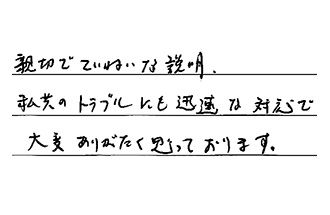 親切でていねいな説明.
私共のトラブルにも迅速な対応で
大変ありがたく思っております。